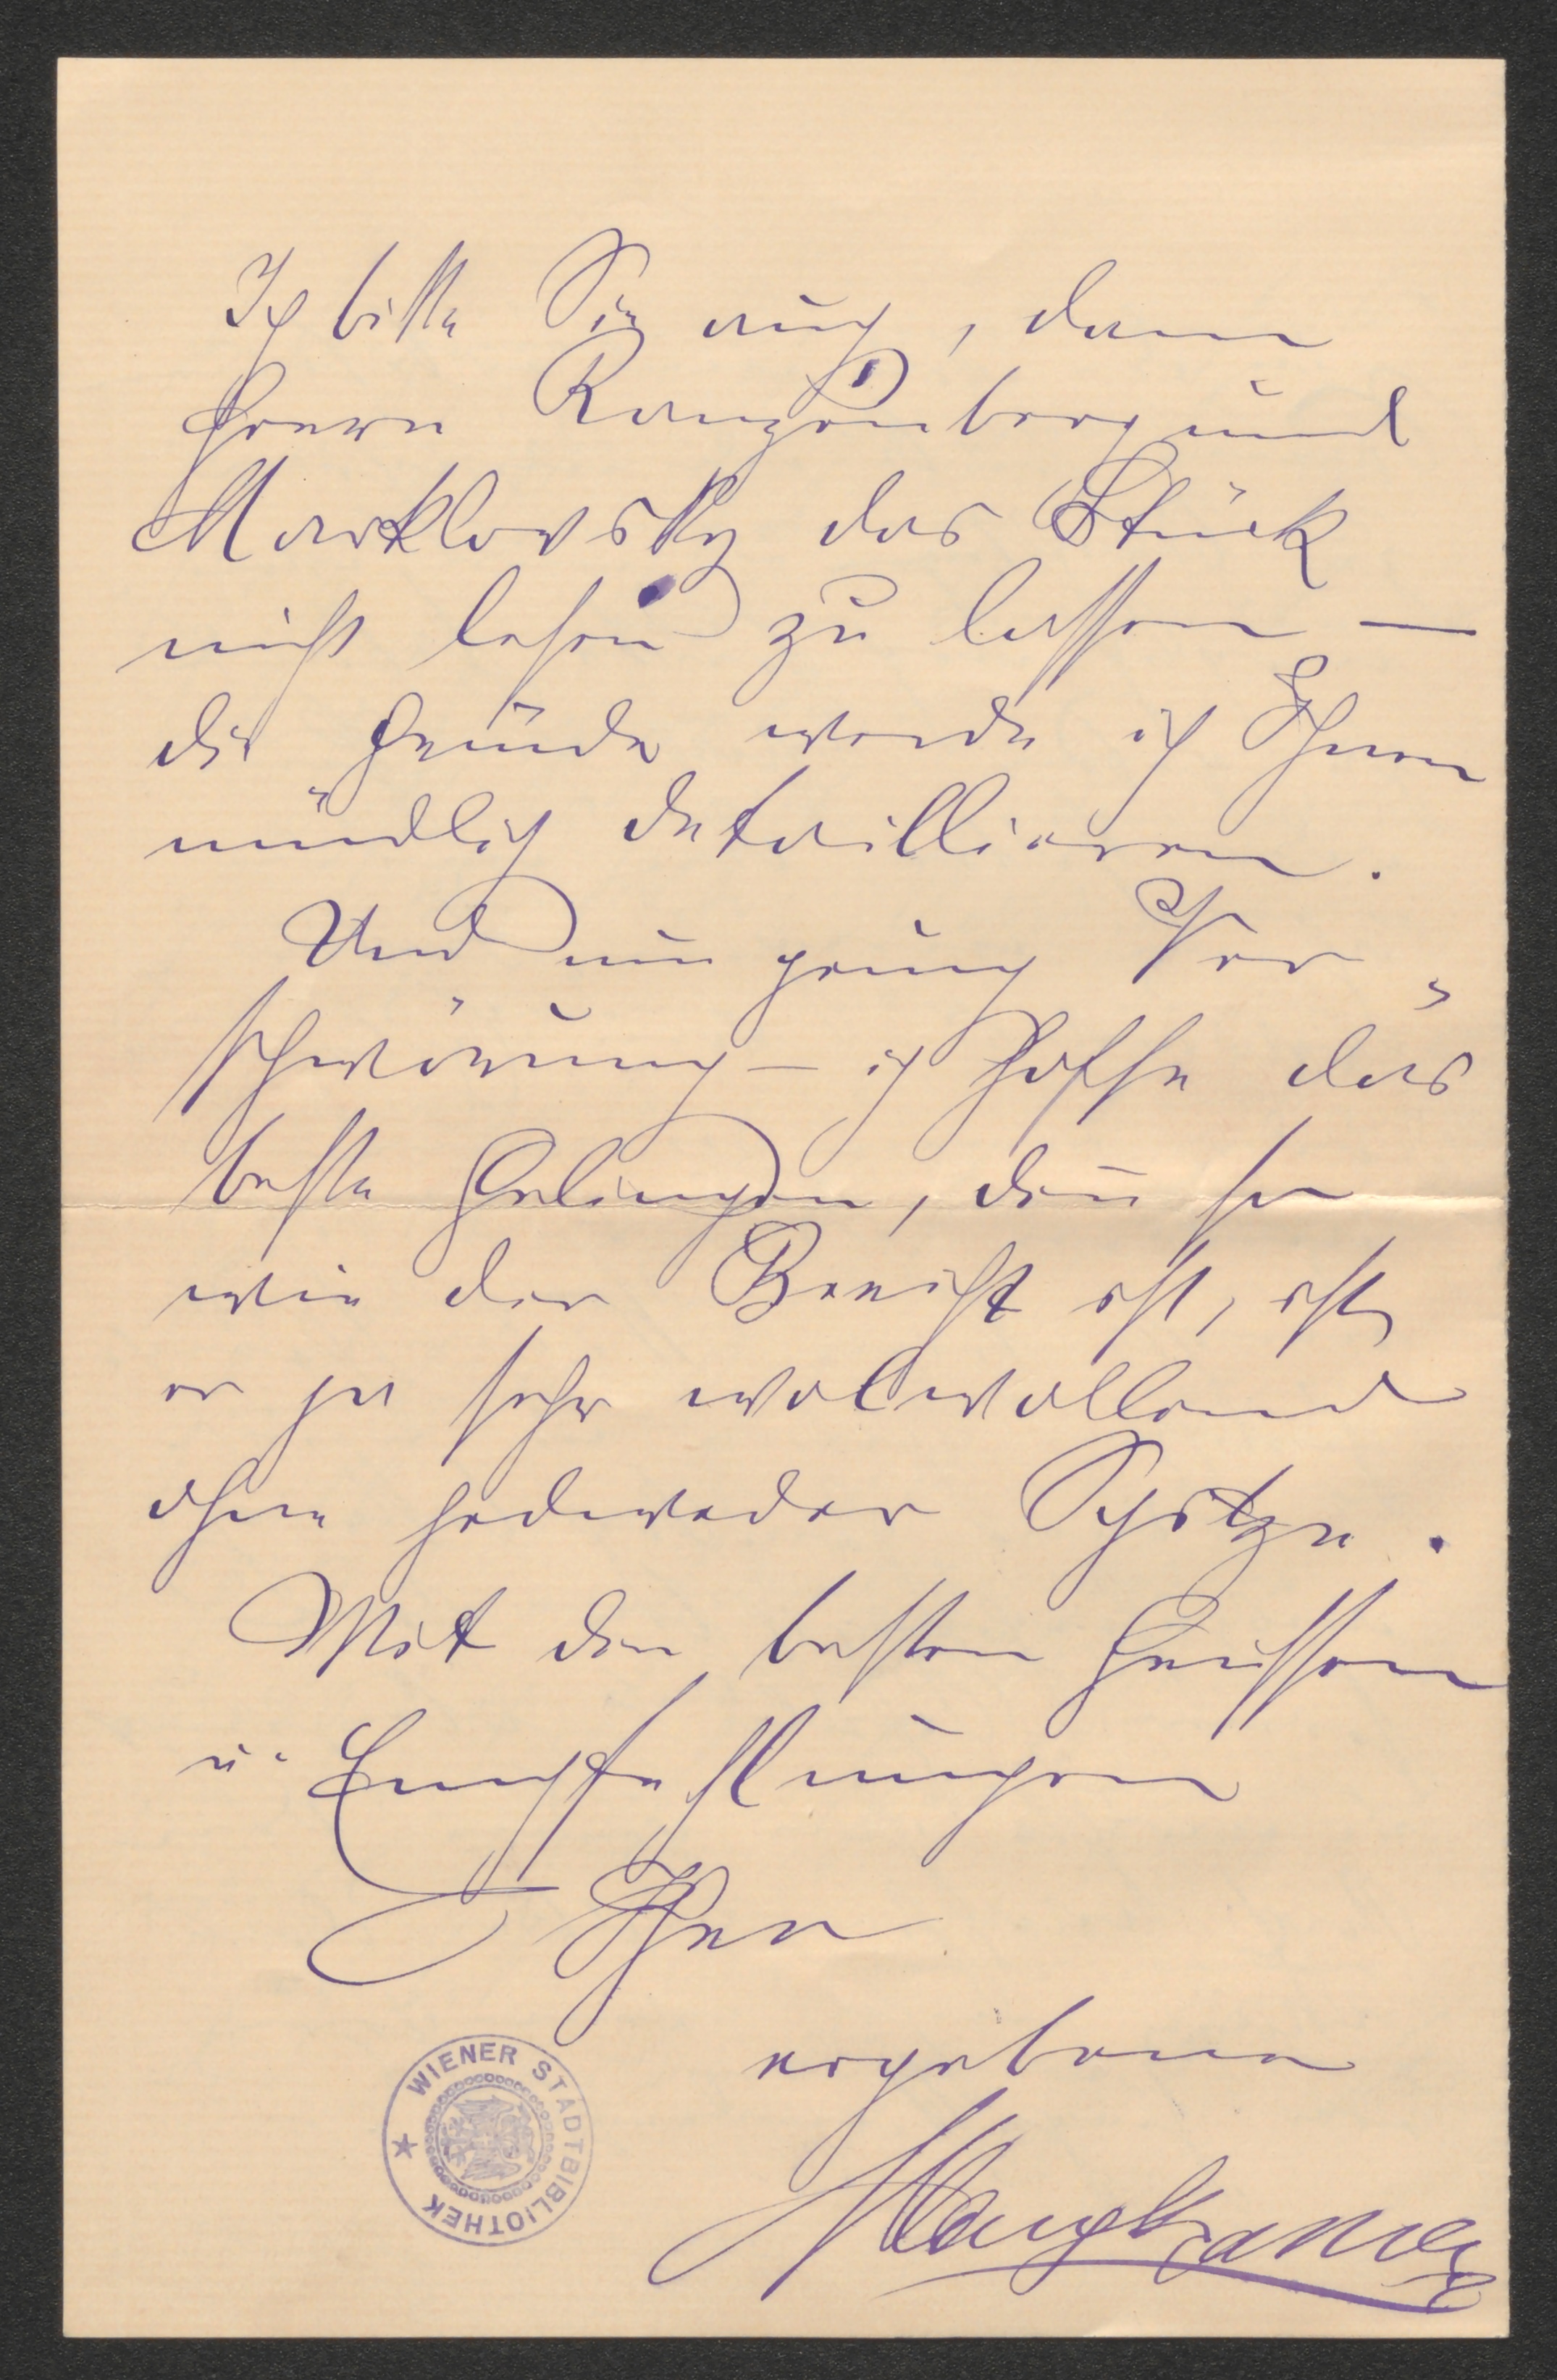 Ich bitte Sie auch, dem
Herrn Ranzenberg und
Marklovsky das Stück
nicht lesen zu lassen —
die Gründe werde ich Ihnen
mündlich detaillieren.
Und nun genug Ver-
schwörung — ich hoffe das
beste Gelingen, denn so
wie der Bericht ist, ist
er ja sehr wolwollend
ohne jedweder Spitze.
Mit den besten Grüssen
u. Empfehlungen
Ihr
ergebener
WIENER STADTBIBLIOTHEK